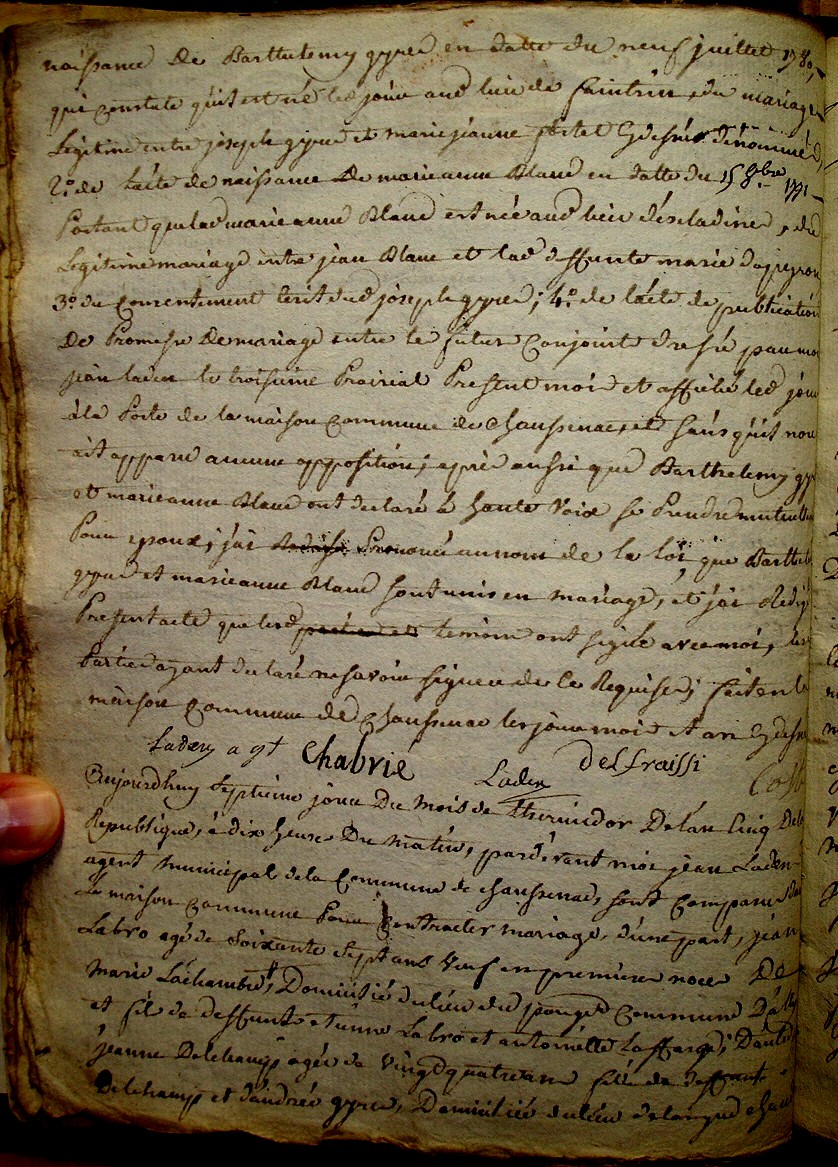 naissance de Barthelemy gyred en datte du neuf juillet 1780,
qui constate qu'il est né led jour aud lieu de saintrin, du mariage
legitime entre joseph gyred et marie jeanne cydesus dénommés,
2º. de lacte de naissance de marie anne Blanc en datte du 15 8bre 1771
Portant que lad marie anne Blanc est née aud lieu , du
Legitime mariage entre jean Blanc et lad deffunte marie
3º. du consentement verbal dud joseph gyred; 4º. de lacte de publication
De Promesse de mariage entre le futur conjoints dressé par moi
jean laden le troisieme Prairial Present mois et affiché led jour
à la Porte de la maison commune de chaussenac, et sans qu'il nous
ait apparu aucune opposition; après aussi que Barthelemy gy
et marie anne Blanc ont declaré à haute voix se Prendre mutuelle
Pour epoux; j'ai Prononcé au nom de la loi que Barthele
gyred et marie anne Blanc sont unis en mariage, et j'ai Redigé
Present acte que lesd temoins ont signé avec moi, les
Parties ayant declaré ne savoir signer de ce Requises; fait en la
maison commune de chaussenac les jour mois et an cydesus
Laden agt Chabrié Laden delfraissi
Aujourdhuy septieme jour du mois de thermidor de lan cinq dela
Republique, à dix heures du matin, pardevant moi jean Laden
agent municipal de la commune de chaussenac, sont comparus dans
La maison commune Pour contracter mariage, d'une part, jean
Labro agé de soixante sept ans veuf en premiere noce de
Marie Lachambre, Domicilié du lieu du pouget commune d'ally
et fils de deffunts etienne Labro et antoinette Laffarge; D'autre
jeanne Delchamp agée de vingt quatre ans fille de deffunt
Delchamp et d'andrée gyred, Domiciliée du lieu de